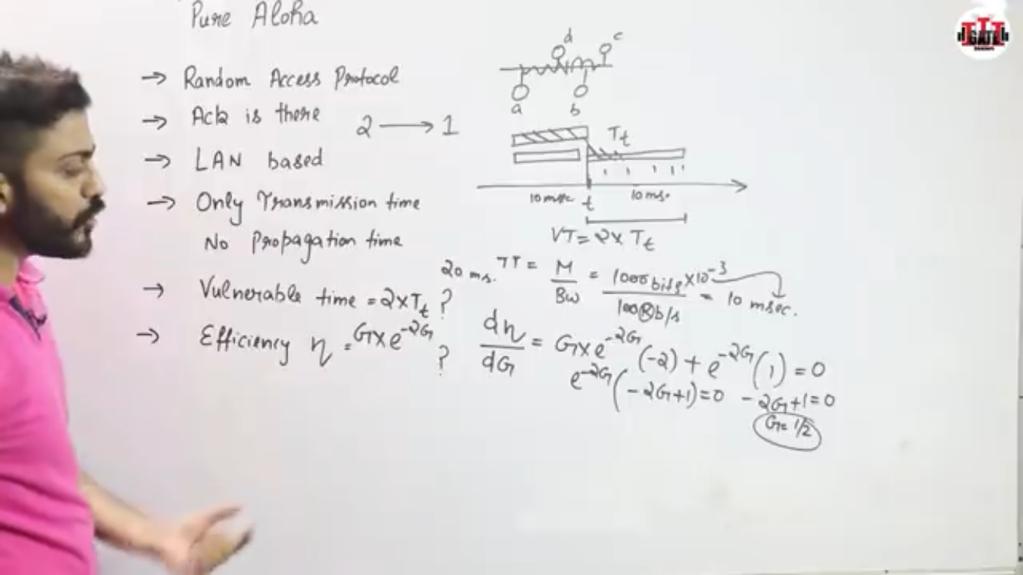 Pure Aloha
→ Random Access Protocol
→ Ack is there
2 → 1
→ LAN based
→ Only Transmission time
No Propagation time
→ Vulnerable time = 2×Tt ?
→ Efficiency η = G×e^-2G ?
d c
a b
Tt
10 msec t 10 ms.
VT = 2×Tt
20 ms. TT = M/BW = 1000 bits/100 Kb/s ×10^-3 = 10 msec.
dη/dG = G×e^-2G (-2) + e^-2G (1) = 0
e^-2G (-2G+1) = 0 -2G+1=0
G=1/2
GATE